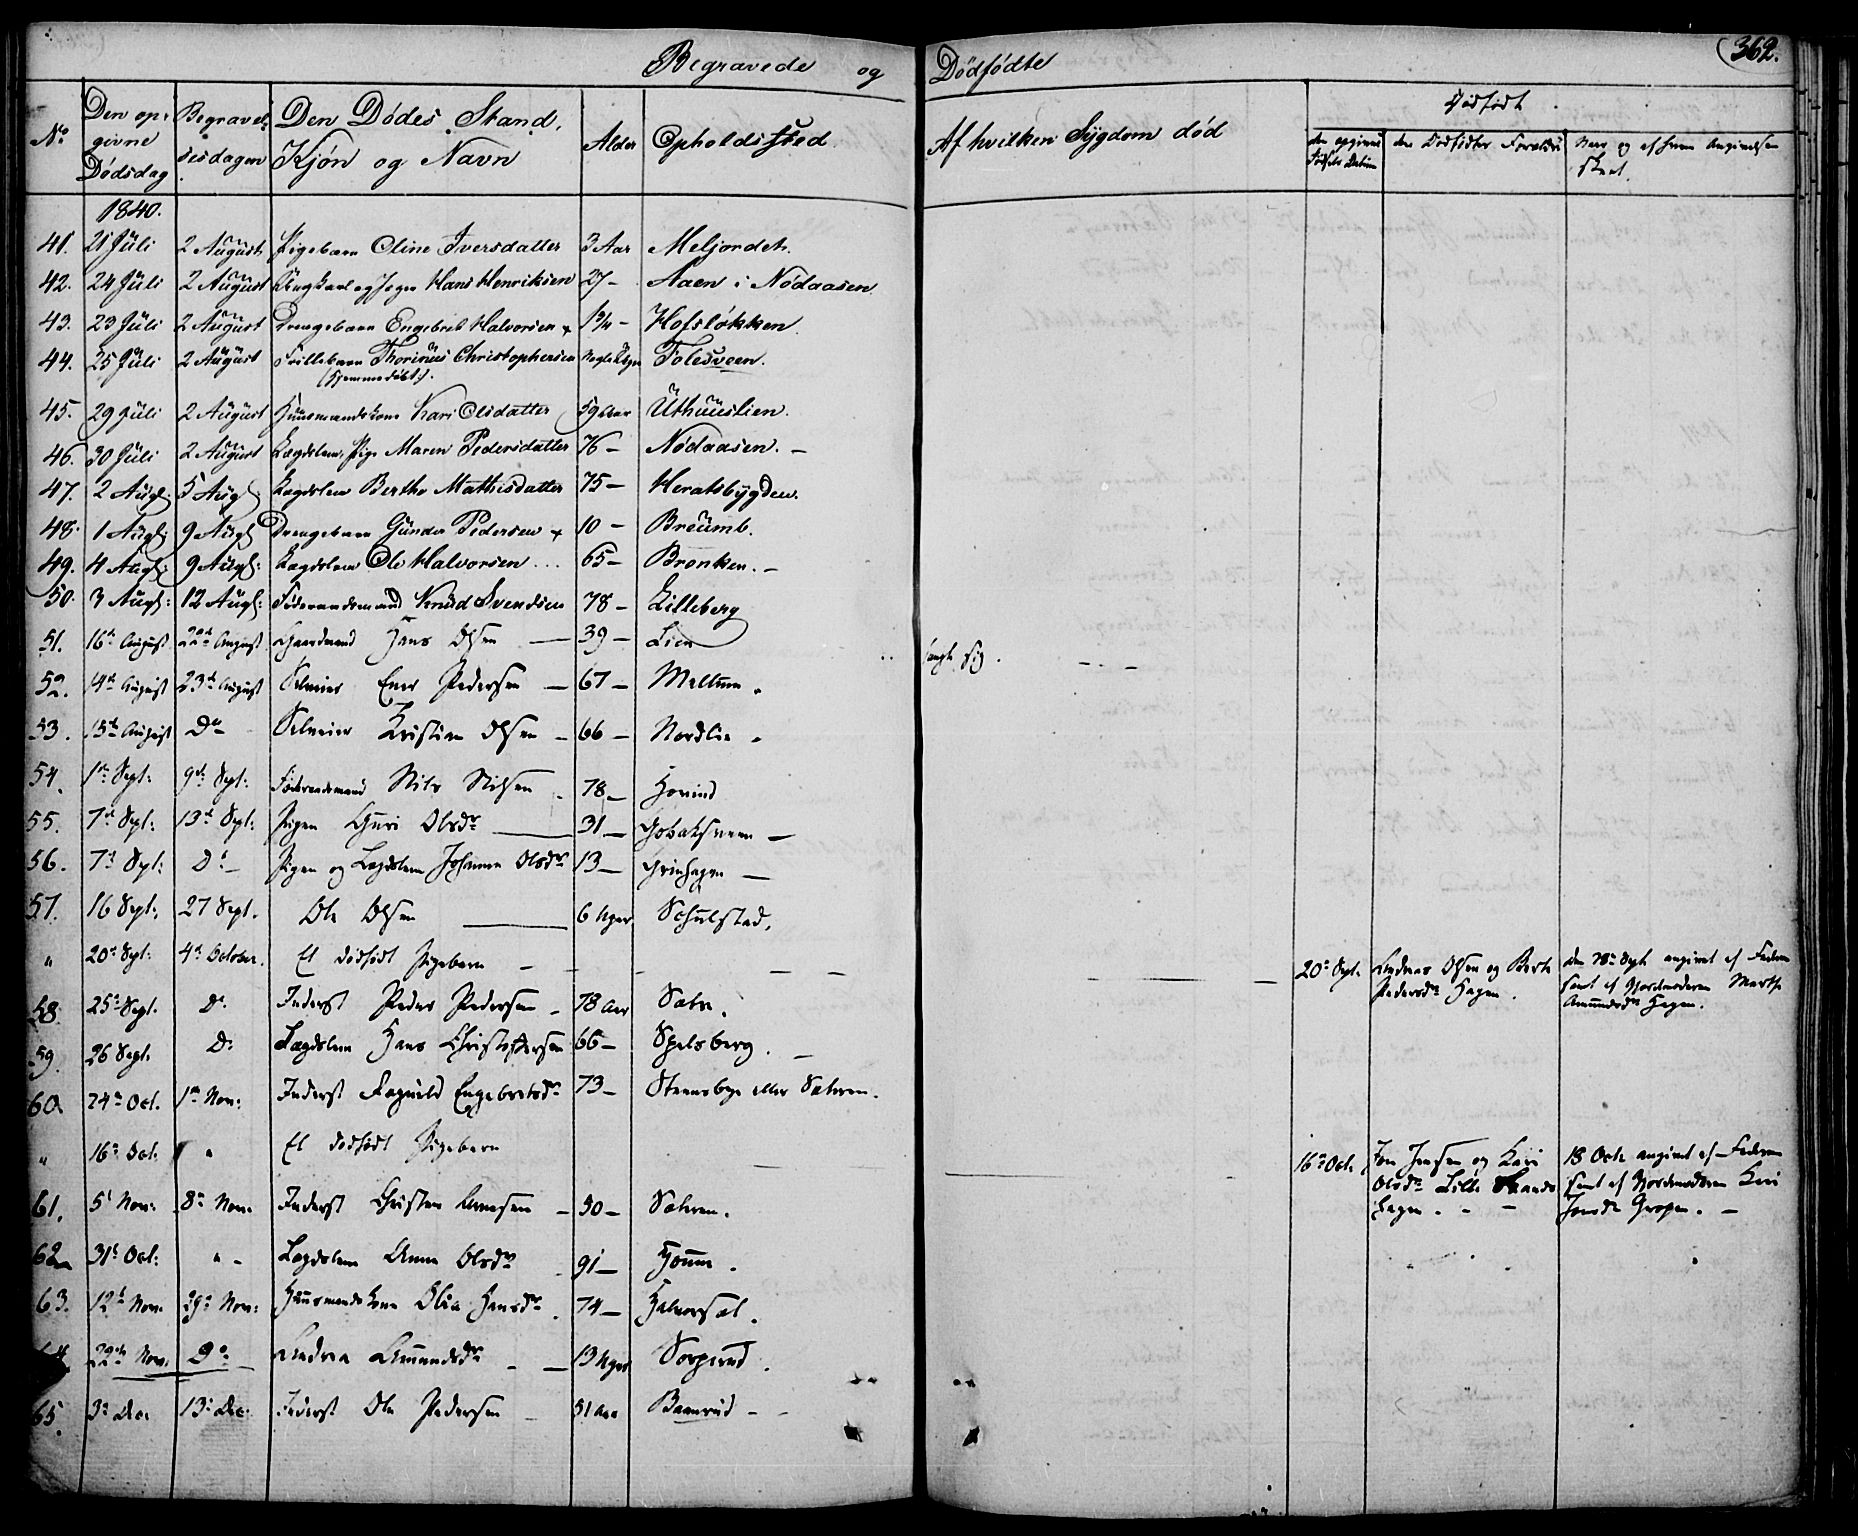 Begravede og Dödfödte 362.
No Den op- Begravel- Den Dödes Stand, Alder Opholdssted Af hvilken Sygdom död Dödfödt
givne sesdagen Kjön og Navn den opgivne den Dödfödtes Forældre Naar og af hvem Angivelsen
Dödsdag Födsels Datum skeet.
1840.
41. 21 Juli 2 August Pigebarn Oline Iversdatter 3 Aar Meljordet.
42. 24 Juli 2 August Hans Henriksen 27 - Aaen i Nödaasen
43. 23 Juli 2 August Drengebarn Engebret Halvorsen + Hofslökken.
44. 25 Juli 2 August Thorinus Christophersen Tolesveen.
(hjemmedöbt).
45. 29 Juli 2 August Huusmandskone Kari Olsdatter 59 Aar Uthuuslien.
46. 30 Juli 2 August Lægdslem, Pige Maren Pedersdatter 76 - Nödaasen. -
47. 2 Aug: 5 Aug: Lægdslem Berthe Mathisdatter 75 - Heratsbygden.
48. 1 Aug: 9 Aug: Drengebarn Gunder Pedersen + 10 - Breumb.
49. 4 Aug: 9 Aug: Lægdslem Ole Halvorsen ... 65 - Bronken. -
50. 3 Aug: 12 Aug: Föderaadsmand Knud Svendsen 78 - Lilleberg
51. 16de August 22de August Gaardmand Hans Olsen — 39 - Lien hængte sig.
52. 14de August 23de August Selveier Ener Pedersen — 67 - Meltum.
53. 15de August Do Selveier Kristian Olsen - 66 - Nordlie.
54. 1ste Sept: 9de Sept: Föderaadsmand Nils Nilsen - 78 - Hovind
55. 7de Sept: 13de Sept: Pigen Guri Olsdr — 31 -
56. 7de Sept: Do - Pigen og Lægdslem Johanne Olsdr 13 - Grinhagen —
57. 16 Sept: 27 Sept. Ole Olsen — 6 Uger Schulstad.
" 20de Sept: 4de October. Et dödfödt Pigebarn - 20de Sept. Andreas Olsen og Berte den 28de Sept angivet af Faderen
Pedersdr Hagen. samt af Gjordmoderen Marthe
Amundsdr Hagen.
58. 25de Sept. Do Inderst Peder Pedersen - 78 Aar Sætre.
59. 26 Sept. Do Lægdslem Hans Christophersen 66 - Spelsberg. -
60 24de Oct. 1ste Nov: Inderst Ragnild Engebretsdr 73 - Steensbye eller Sætren.
" 16de Oct. " Et dödfödt Pigebarn 16de Oct. Jon Jensen og Kari 18 Octr angivet af Faderen
Olsdr Lille Strands samt af Gjordemoderen Kari
Hagen. - - Jonsdr Gropen. -
61. 5te Nov: 8de Nov: Inderst Christen Arnesen - 50 - Sætren.
62 31te Oct: " - Lægdslem Anne Olsdr - 91 -
63. 12te Nov. 29de Nov: Huusmandskone Olia Hansdr. 74 - Halvorsæt.
64 22de Nov. Do Andrea Amundsdr - — 13 Uger Sorperud.
65. 3de Dec. 13de Dec. Inderst Ole Pedersen - 51 Aar Baanrud - -